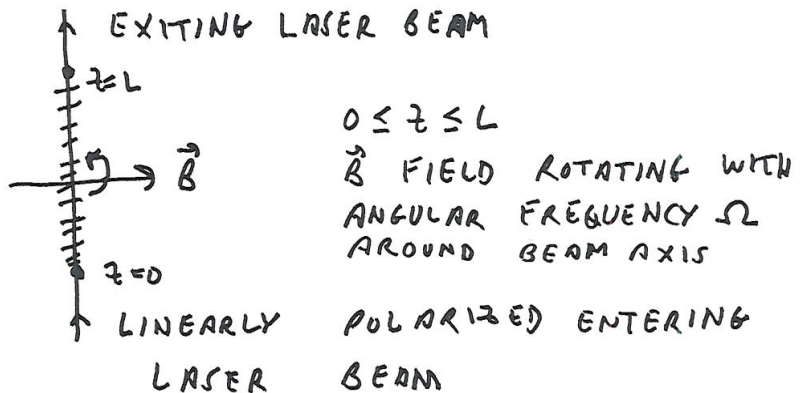 EXITING LASER BEAM
z=L
0 ≤ z ≤ L
B⃗
B⃗ FIELD ROTATING WITH
ANGULAR FREQUENCY Ω
AROUND BEAM AXIS
z=0
LINEARLY POLARIZED ENTERING
LASER BEAM